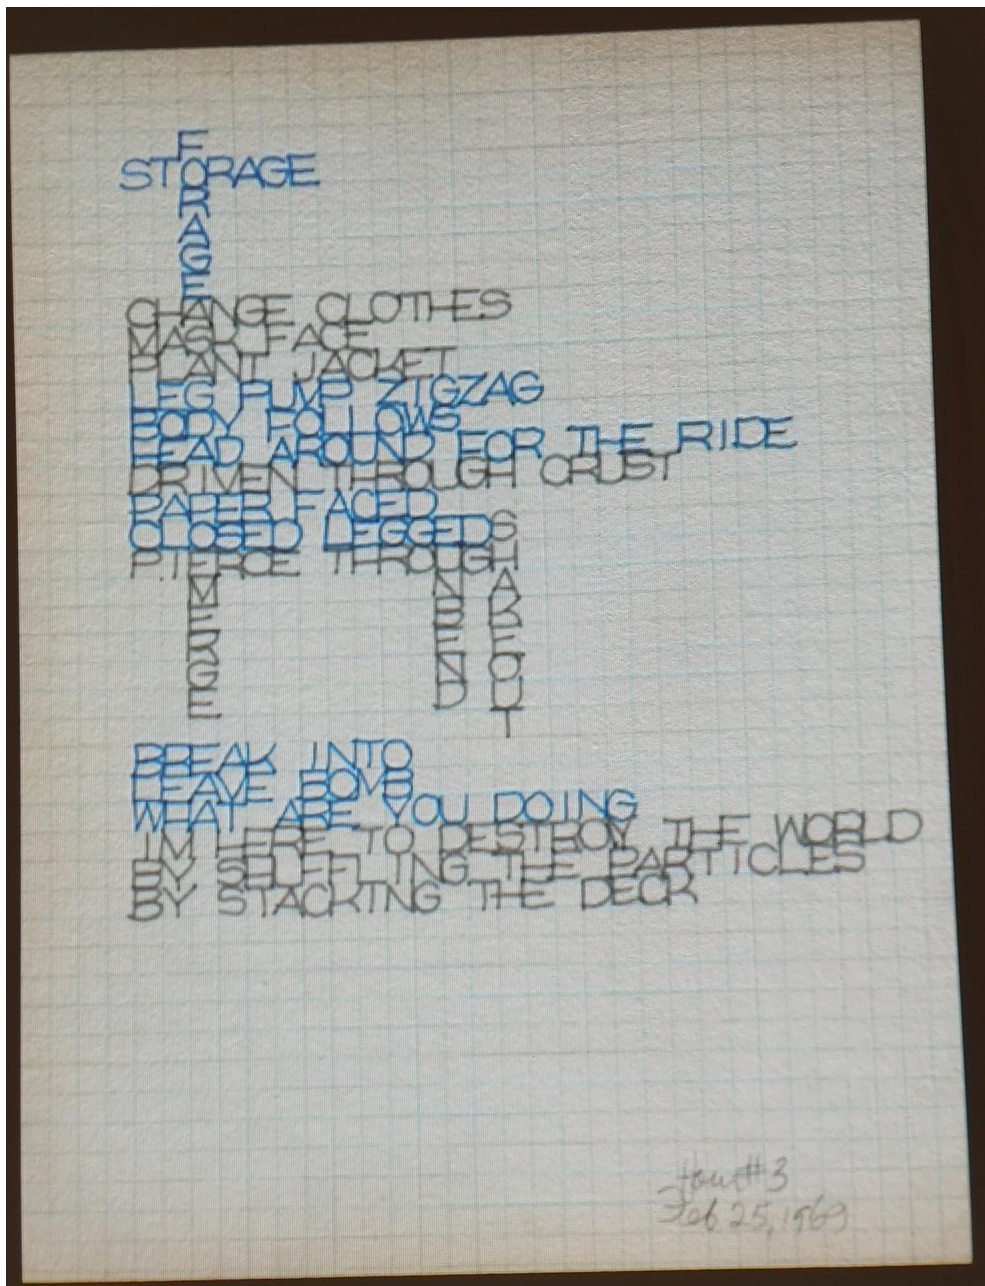 STORAGE
FORAGE
CHANGE CLOTHES
MASK FACE
PLANT JACKET
LEG PUMP ZIGZAG
BODY FOLLOWS
HEAD AROUND FOR THE RIDE
DRIVEN THROUGH CRUST
PAPER FACED
CLOSED LEGGED
PIERCE THROUGH
EMERGE
UNBEND
SHAKE OUT
BREAK INTO
LEAVE BOMB
WHAT ARE YOU DOING
IM HERE TO DESTROY THE WORLD
BY SHUFFLING THE PARTICLES
BY STACKING THE DECK
#3
Feb 25, 1969